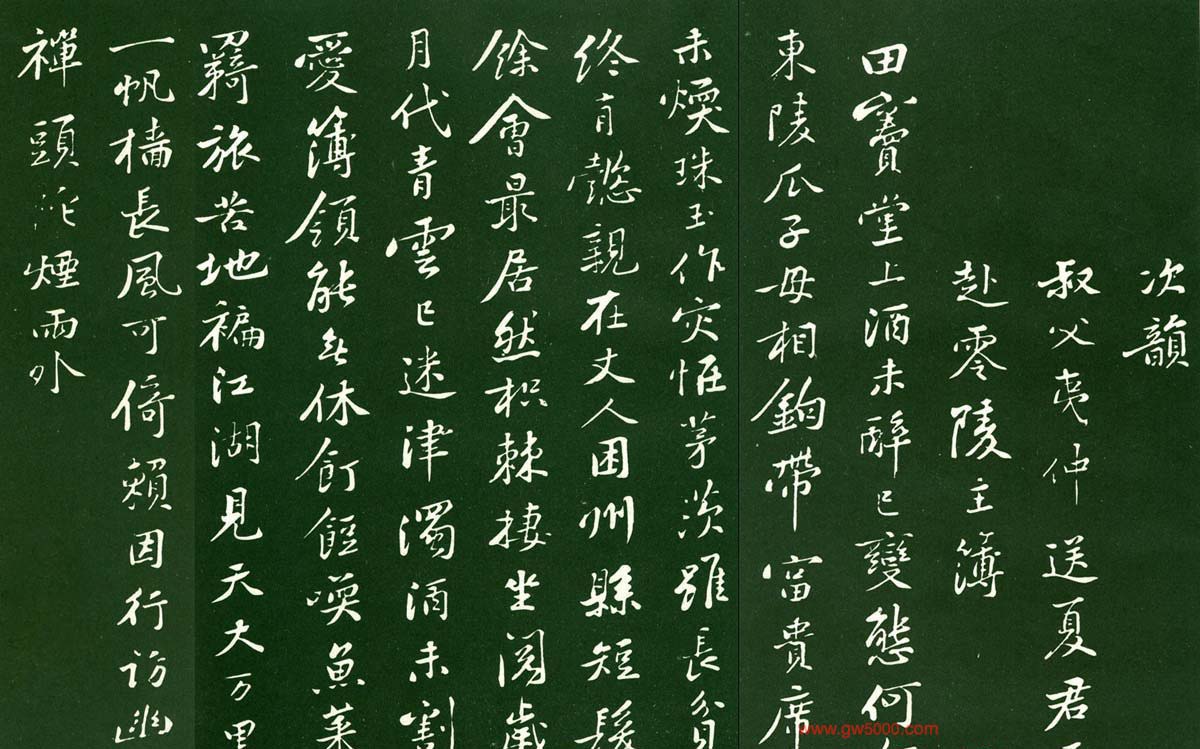 次韻
叔父夷仲送夏君
赴零陵主簿
田竇堂上酒未醉已變態何
東陵瓜子母相鉤帶富貴席
未煖珠玉作灾恠茅茨雖長貧
終有懿親在丈人困州縣短髮
餘會最居然枳棘棲坐閱歲
月代青雲已迷津濁酒未割
愛簿領能无休飣餖喚魚菜
羇旅苦地褊江湖見天大万里
一帆檣長風可倚賴因行訪幽
禪頭陀煙雨外
www.gw5000.com